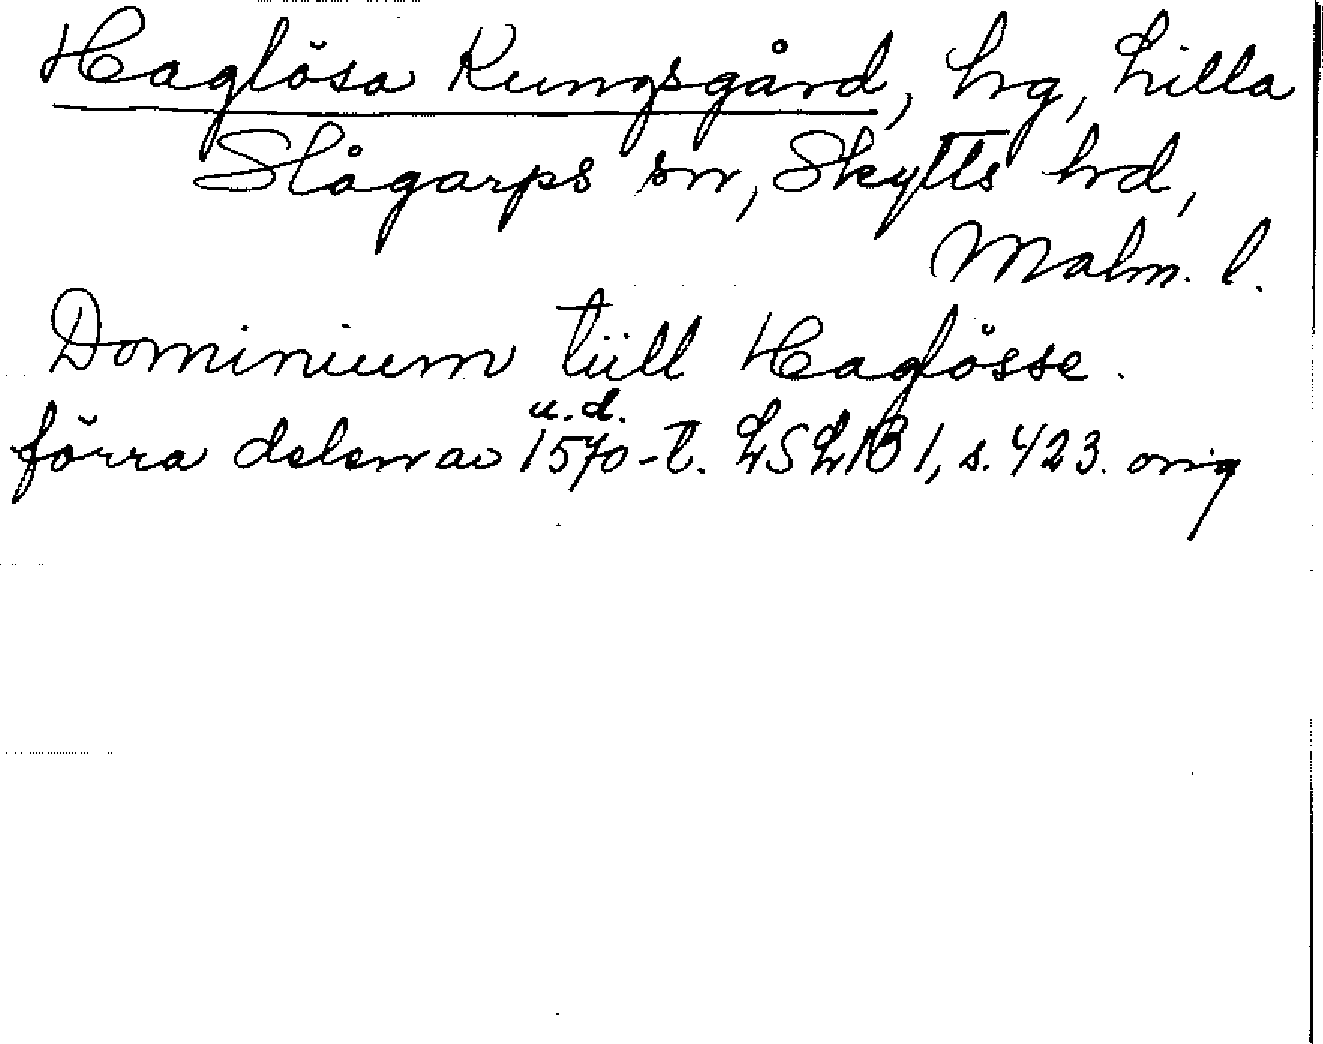 Haglösa Kungsgård, hrg, Lilla
Slågarps sn, Skytts hd,
Malm. l.
Dominium tiill Haglösse.
u.d.
förra delen av 1570-t. LSLJB 1, s. 423. orig